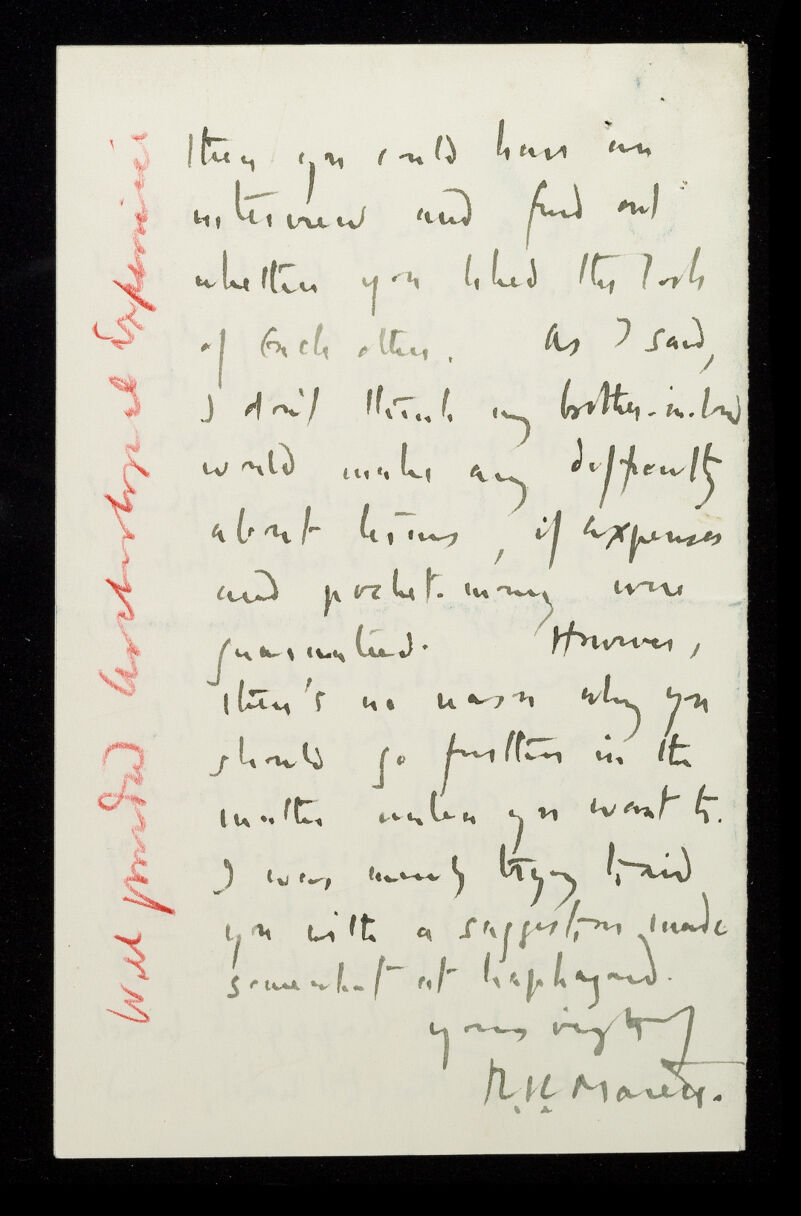 then you could have an
interview and find out
whether you liked the look
of each other. As I said,
I don't think my brother-in-law
would make any difficulty
about terms, if expenses
and pocket-money were
guaranteed. However,
there's no reason why you
should go further in the
matter unless you want to.
I was merely trying to aid
you with a suggestion made
somewhat at haphazard.
yours
R.R. Marett.
Will provided Archaeological Experience